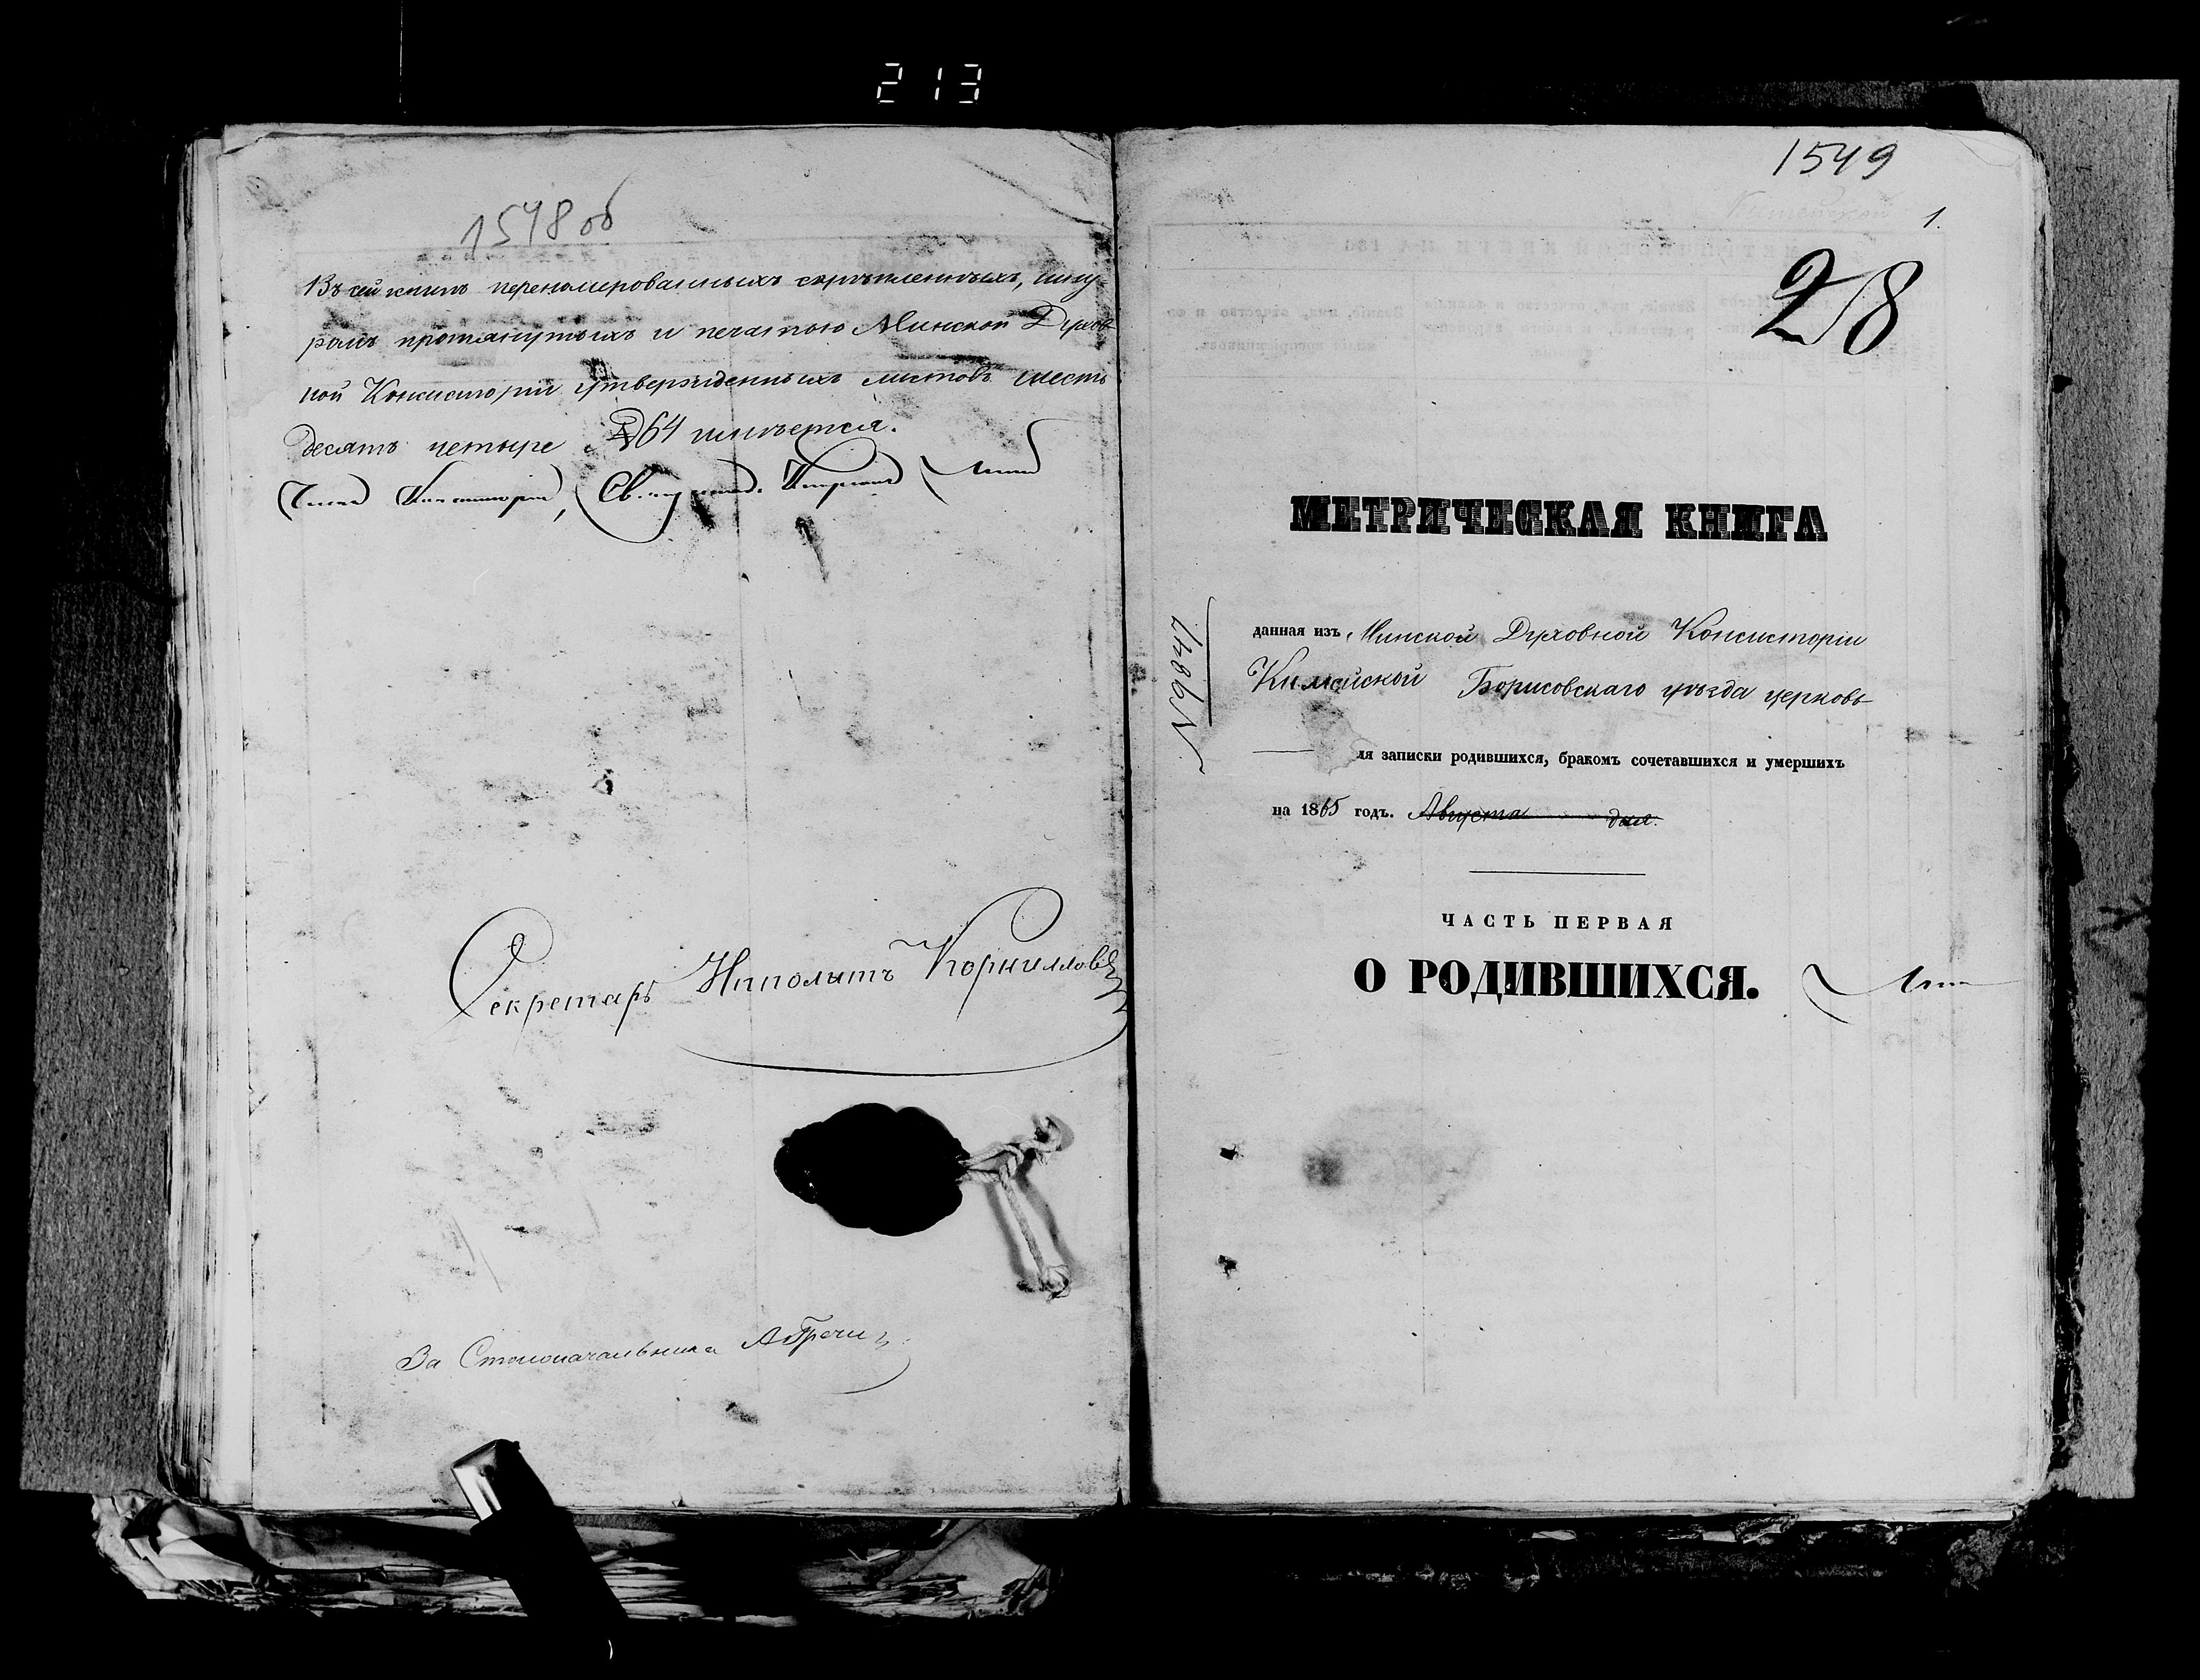 213
1548 об
Въ сей книгѣ переномерованныхъ скрѣпленныхъ, шну-
ромъ протянутыхъ и печатью Минской Духов
ной Консисторіи утвержденныхъ листовъ шесть
десятъ четыре 64 имѣется.
Членъ Консисторіи,
Секретарь Ипполитъ Корнилловъ
За Столоначальника
1549
1.
28
МЕТРИЧЕСКАЯ КНИГА
№ 9847
данная изъ Минской Духовной Консисторіи
Кимейской Борисовскаго уѣзда церковь
ля записки родившихся, бракомъ сочетавшихся и умершихъ
на 1865 годъ. Августа дня.
ЧАСТЬ ПЕРВАЯ
О РОДИВШИХСЯ.